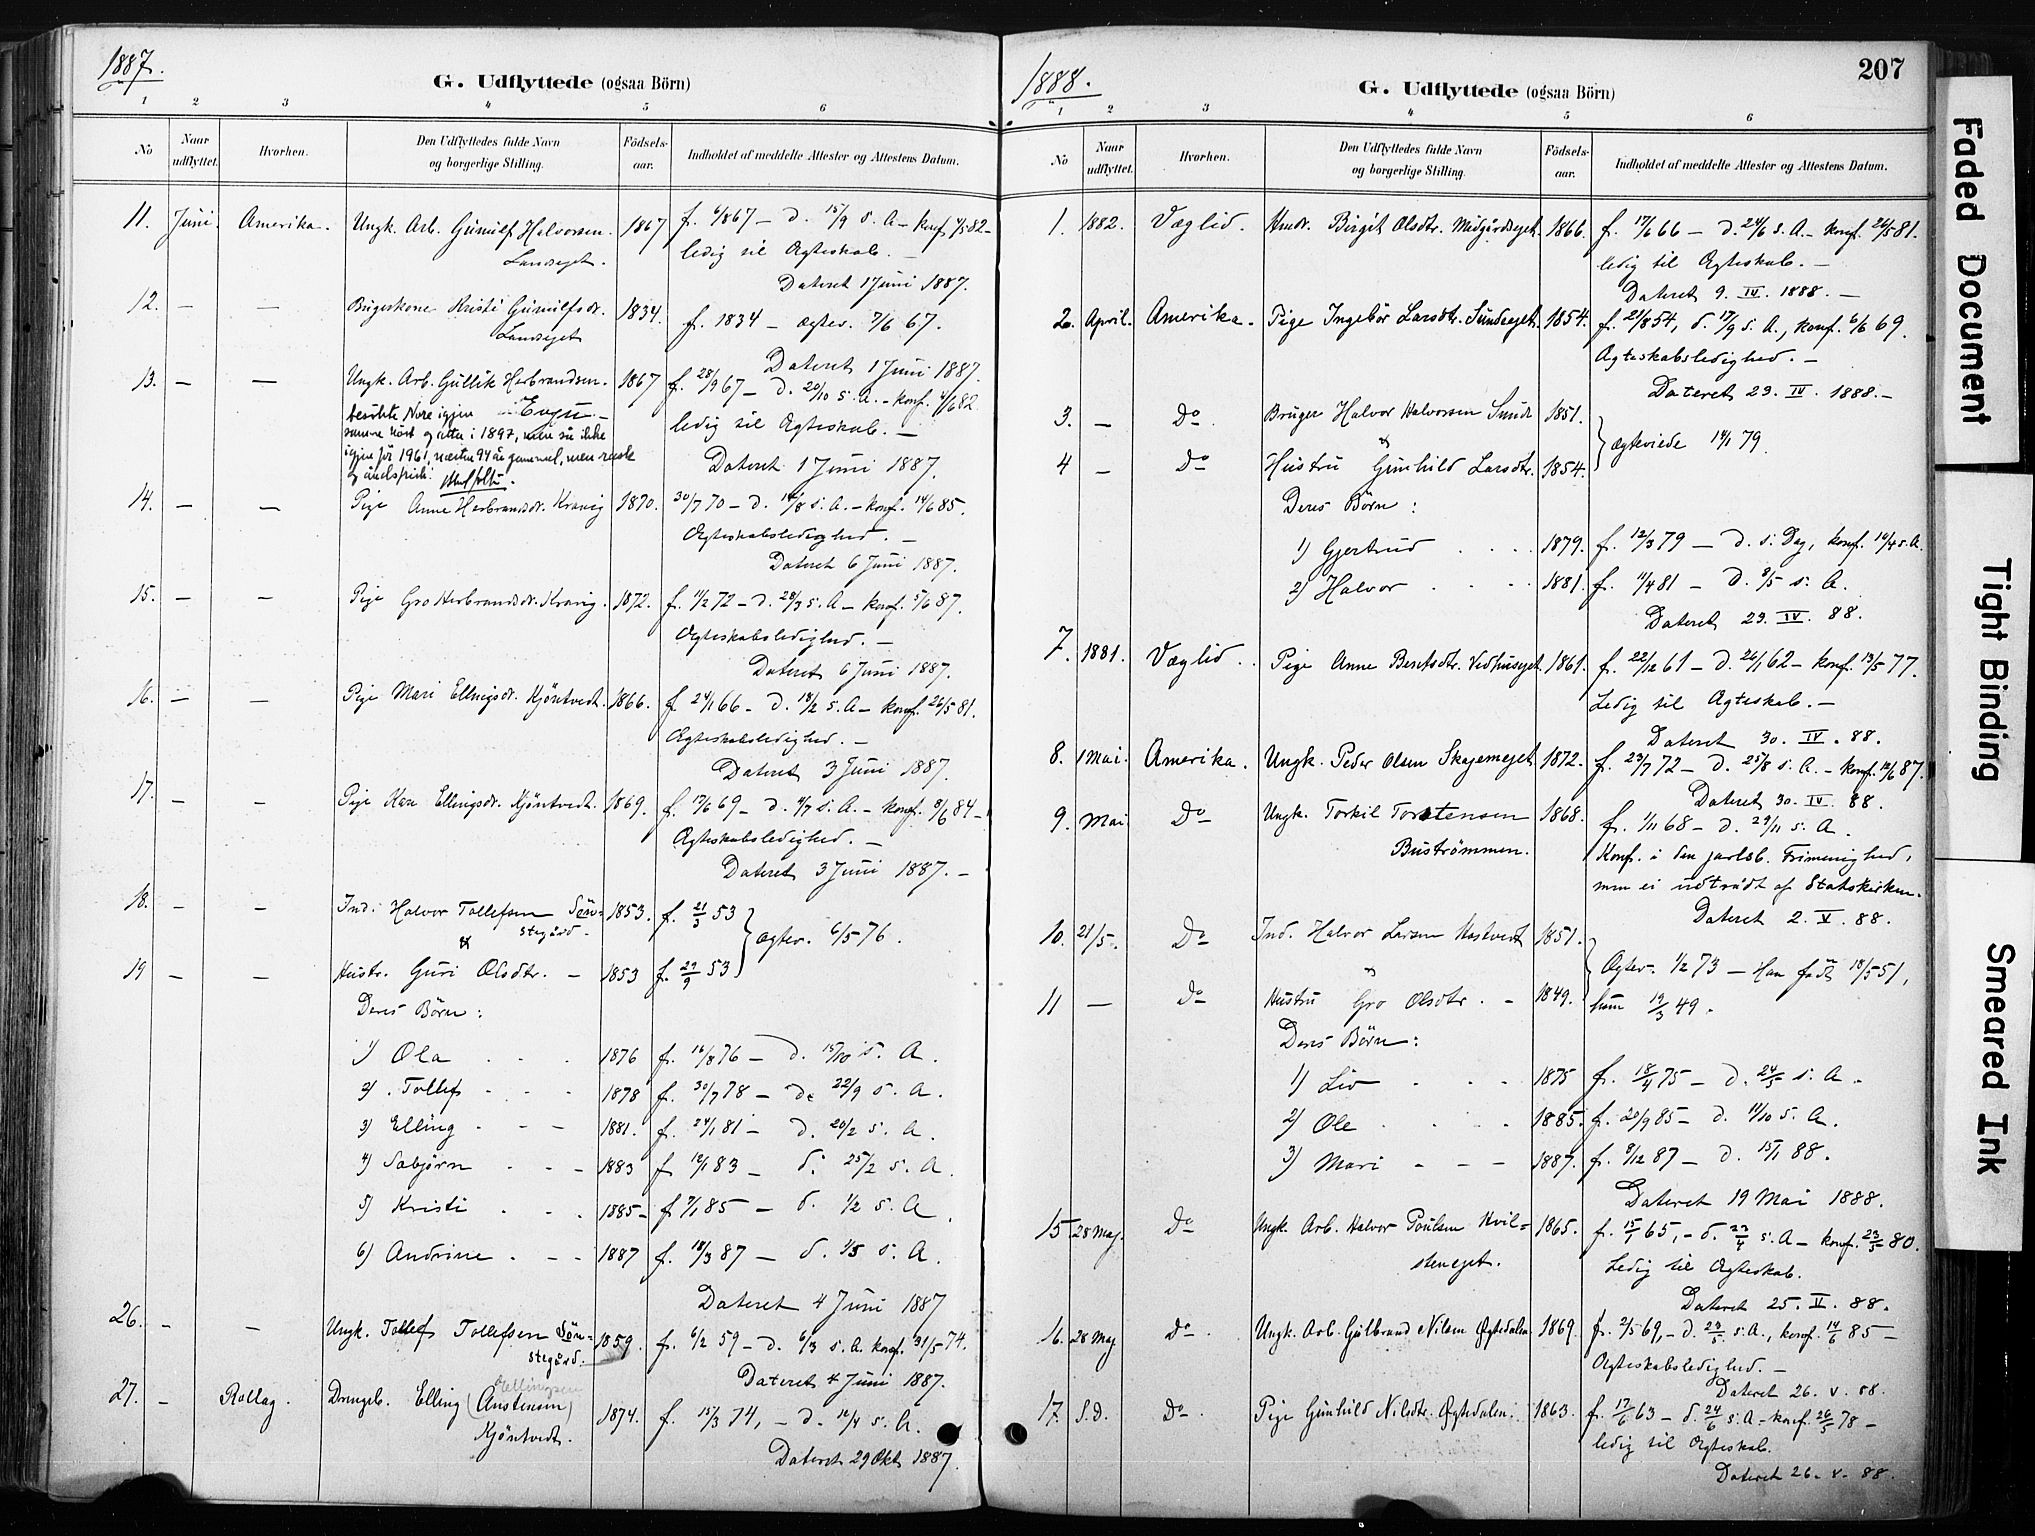 1887.
G. Udflyttede (ogsaa Börn)
1 2 3 4 5 6
No
Naar udflyttet.
Hvorhen.
Den Udflyttedes fulde Navn og borgerlige Stilling.
Födsels-aar.
Indholdet af meddelte Attester og Attestens Datum.
11. Juni. Amerika. Ungk. Arb. Gunulf Halvorsen 1867 f. 6/8 67 – d. 15/9 s. A – konf. 82 –
Landseget. ledig til Ægteskab. –
Dateret 1 Juni 1887.
12. – – Brugeskone Kristi Gunulfsdr. 1834. f. 1834 – ægtev. 7/6 67.
Landseget
Dateret 1 Juni 1887.
13. – – Ungk. Arb. Gullik Herbrandsen. 1867 f. 28/9 67 – d. 20/10 s. A. – konf. 4/6 82.
besökte Nore igjen ledig til Ægteskab. –
i 1897, men så ikke
igjen på 1961, næsten 94 år gammel, men rask Dateret 1 Juni 1887.
og åndsfrisk.
14. – – Pige Anne Herbrandsdr. Kravig 1870. 30/7 70 – d. 14/8 s. A. – konf. 14/6 85.
Ægteskabsledighed. –
Dateret 6 Juni 1887.
15. – – Pige Gro Herbrandsdr. Kravig. 1872. f. 11/2 72 – d. 28/3 s. A – konf. 5/6 87.
Ægteskabsledighed. –
Dateret 6 Juni 1887.
16. – – Pige Mari Ellingsdr. Kjöntvedt. 1866. f. 24/1 66 – d. 18/2 s. A – konf. 26/5 81.
Ægteskabsledighed. –
Dateret 3 Juni 1887.
17. – – Pige Kari Ellingsdr. Kjöntvedt. 1869. f. 17/6 69 – d. 4/7 s. A. – konf. 8/6 84 –
Ægteskabsledighed. –
Dateret 3 Juni 1887. –
18. – – Ind. Halvor Tollefsen Sön- 1853. f. 21/3 53
stegård. ægtev. 6/5 76.
&
19 – – Hustr. Guri Olsdtr. – 1853 f. 29/9 53
Deres Börn:
1) Ola 1876 f. 16/8 76 – d. 15/10 s. A.
2) Tollef 1878 f. 30/7 78 – d. 22/9 s. A.
3) Elling 1881. f. 24/1 81 – d. 20/2 s. A.
4) Sebjörn 1883 f. 12/1 83 – d. 25/2 s. A.
5) Kristi 1885 – f. 7/1 85 – d. 1/2 s. A.
6) Andrine 1887 f. 18/3 87 – d. 1/5 s. A.
Dateret 4 Juni 1887
26. – – Ungk. Tollef Tollefsen Sön- 1859. f. 6/2 59 – d. 6/3 s. A. konf. 31/5 74.
stegård. Dateret 4 Juni 1887.
27. – Rollag. Drengeb. Elling (Austensen) 1874. f. 15/3 74, – d. 12/4 s. A.
Ellingsen
Kjöntvedt.
Dateret 29 Okt 1887.
1888.
207
G. Udflyttede (ogsaa Börn)
1 2 3 4 5 6
No
Naar udflyttet.
Hvorhen.
Den Udflyttedes fulde Navn og borgerlige Stilling.
Födsels-aar.
Indholdet af meddelte Attester og Attestens Datum.
1. 1882. Væglid. Birgit Olsdtr. Midgårdseget. 1866. f. 17/6 66 – d. 24/6 s. A. – konf. 26/5 81.
ledig til Ægteskab. –
Dateret 9. IV. 1888. –
2. April. Amerika. Pige Ingebör Larsdtr. Sundeeget 1854. f. 21/8 54, d. 17/9 s. A., konf. 6/6 69.
Ægteskabsledighed. –
Dateret 23. IV. 1888. –
3. – Do Bruger Halvor Halvorsen Sunde 1851.
& ægteviede 14/1 79.
4 – Do Hustru Gunhild Larsdtr. 1854.
Deres Börn:
1) Gjertrud 1879. f. 12/3 79 – d. s. Dag, konf. 10/4 s. A.
2) Halvor 1881. f. 11/4 81 – d. 8/5 s. A.
Dateret 23. IV. 88.
7. 1881. Væglid. Pige Anne Berntsdtr. Vedhuseget 1861. f. 22/12 61 – d. 26/1 62 – konf. 13/5 77.
Ledig til Ægteskab. –
Dateret 30. IV. 88.
8. 1 Mai. Amerika. Ungk. Peder Olsen Skajemeget 1872. f. 23/7 72 – d. 25/8 s. A. – konf. 12/6 87.
Dateret 30. IV. 88.
9. Mai Do Ungk. Torkil Torstensen 1868. f. 1/11 68 – d. 29/11 s. A.
Buströmmen. Konf. i den jarlsb. Frimenighed,
men ei udtrådt af Statskirken.
Dateret 2. V. 88.
10. 21/5. Do Ind. Halvor Larsen Kostvedt 1851.
& Ægtev. 1/2 73 – Han född 18/5 51,
11 – Do Hustru Gro Olsdtr. – 1849. hun 19/3 49.
Deres Börn:
1) Liv 1875 f. 18/4 75 – d. 24/5 s. A.
2) Ole 1885. f. 20/9 85 – d. 11/10 s. A.
3) Mari 1887. f. 8/12 87 – d. 15/1 88.
Dateret 19 Mai 1888.
15 28 Maj. Do Ungk. Arb. Halvor Poulsen Kvil- 1865. f. 15/1 65, – d. 23/4 s. A – konf. 23/5 80.
steneget. Ledig til Ægteskab.
Dateret 25. V. 88.
16. 28 Maj Do Ungk. Arb. Gulbrand Nilsen Øgtedalen 1869. f. 2/5 69, – d. 23/5 s. A., konf. 14/6 85 –
Ægteskabsledighed. –
Dateret 26. V. 88.
17. S. D. Do Pige Gunhild Nilsdtr. Øgtedalen. 1863. f. 17/6 63 – d. 24/6 s. A – konf. 26/5 78 –
ledig til Ægteskab.
Dateret 26. V. 88.
Faded Document
Tight Binding
Smeared Ink